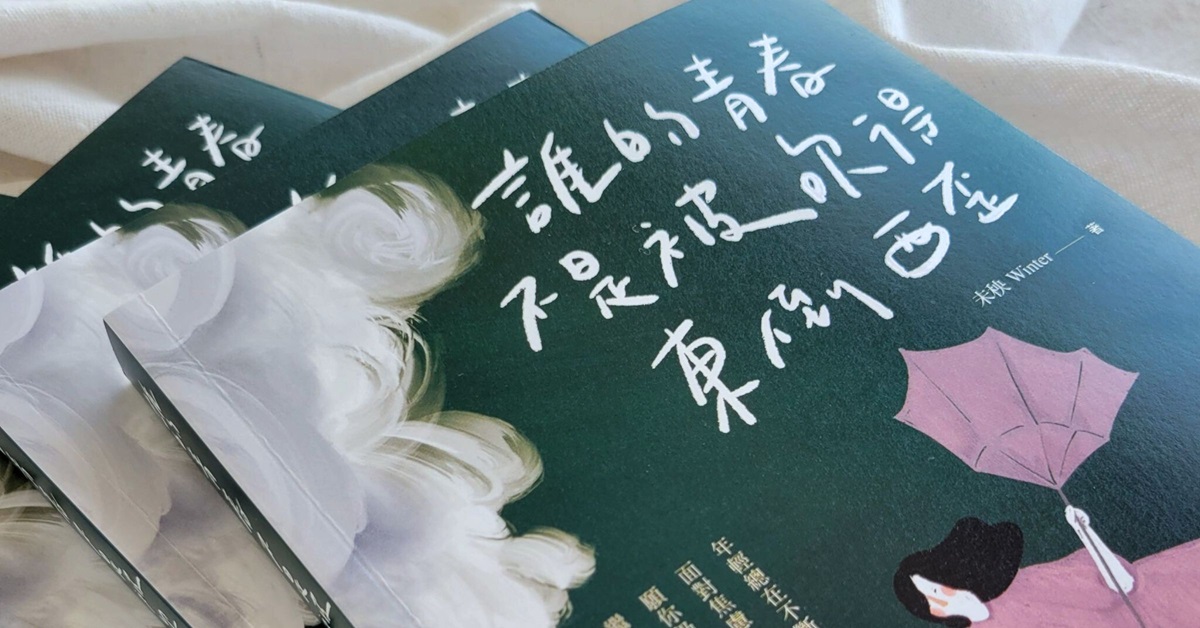 誰的青春
不是被吹得
東倒西歪
未秧 Winter —— 著
年輕總在不斷
面對焦慮
願你
青春